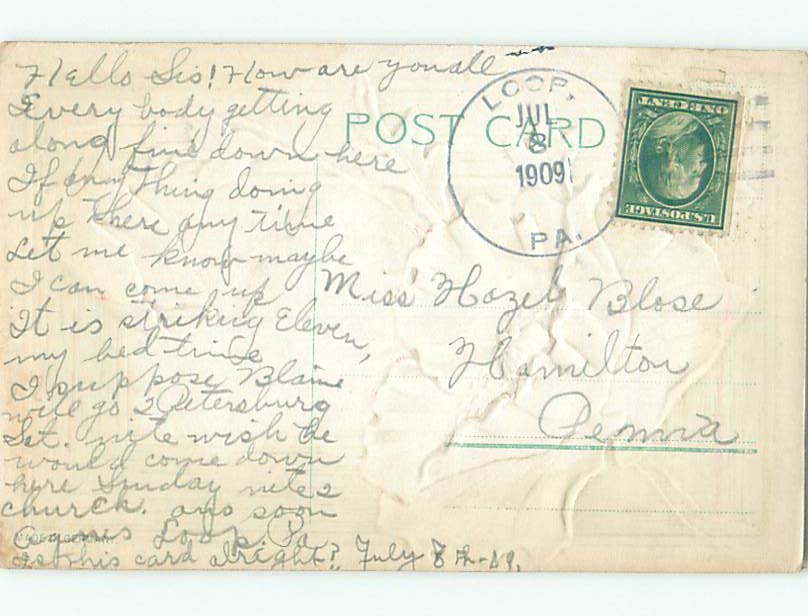 Hello Sis! How are you all
Every body getting
along fine down here
If any thing doing
up there any time
Let me know maybe
I can come up
It is striking Eleven,
my bed time
I suppose Blaine
will go 2 Petersburg
Sat. nite wish he
would come down
here Sunday nite 2
church. ans soon
Agnes Loop. Pa
Is this card alright? July 8th-09.
POST CARD
LOOP,
JUL
8
1909
PA.
U.S. POSTAGE
ONE CENT
Miss Hazel Blose
Hamilton
Penna